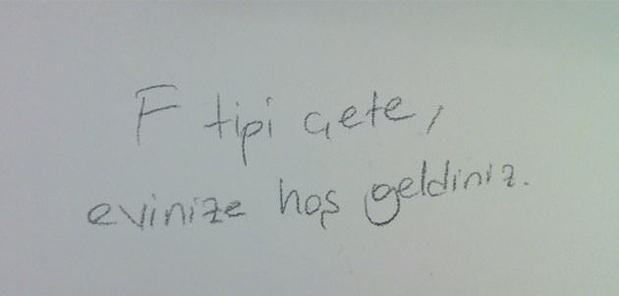 F tipi çete,
evinize hoş geldiniz.